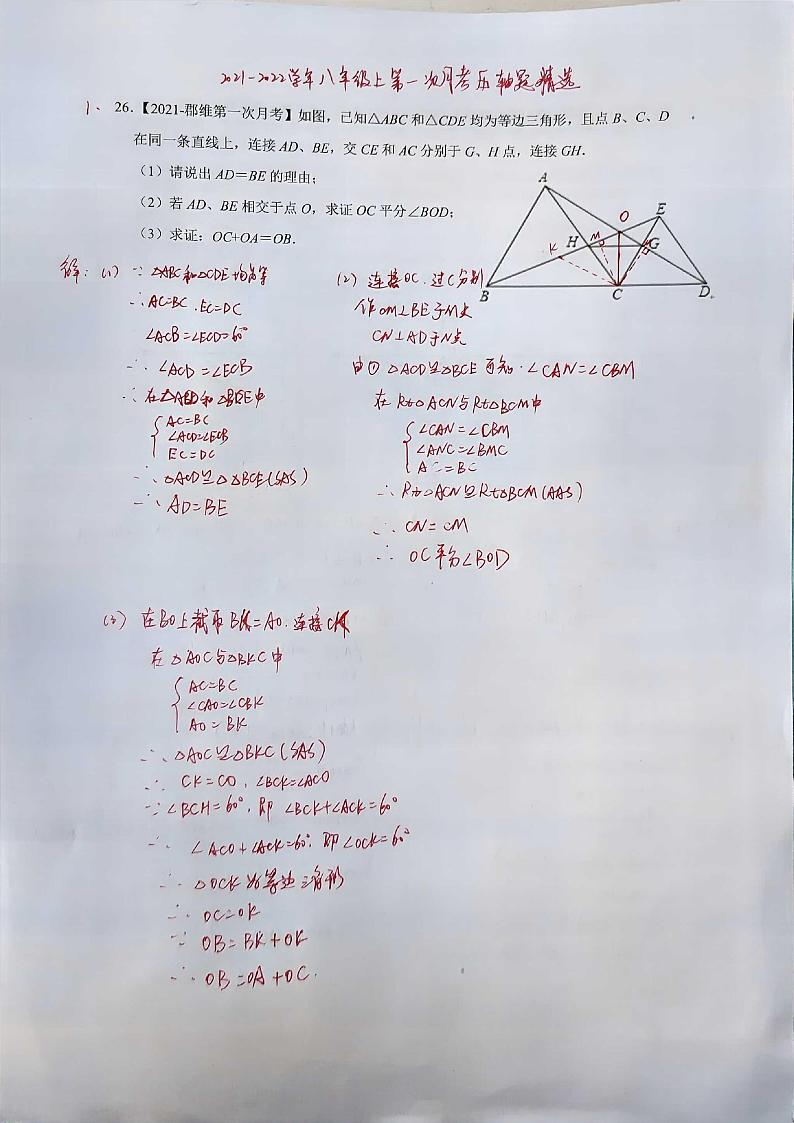 2021-2022学年八年级上第一次月考压轴题精选
1、26.【2021-郡维第一次月考】如图，已知△ABC和△CDE均为等边三角形，且点B、C、D
在同一条直线上，连接AD、BE，交CE和AC分别于G、H点，连接GH.
（1）请说出AD＝BE的理由；
（2）若AD、BE相交于点O，求证OC平分∠BOD；
（3）求证：OC+OA＝OB.
A
E
O
K
H
M
G
B
C
D
解：(1) ∵ △ABC和△CDE均为等
∴AC=BC．EC=DC
∠ACB=∠ECD=60°
∴ ∠ACD=∠ECB
∴在△ACD和△BCE中
AC=BC
∠ACD=∠ECB
EC=DC
∴ △ACD≌△BCE(SAS)
∴ AD=BE
(2) 连接OC．过C分别
作CM⊥BE于M点
CN⊥AD于N点
由① △ACD≌△BCE可知．∠CAN=∠CBM
在Rt△ACN与Rt△BCM中
∠CAN=∠CBM
∠ANC=∠BMC
AC=BC
∴ Rt△ACN≌Rt△BCM(AAS)
∴ CN=CM
∴ OC平分∠BOD
(3) 在BO上截取BK=AO．连接CK
在△AOC与△BKC中
AC=BC
∠CAO=∠CBK
AO=BK
∴ △AOC≌△BKC(SAS)
∴ CK=CO，∠BCK=∠ACO
∵∠BCH=60°，即 ∠BCK+∠ACK=60°
∴ ∠ACO+∠ACK=60°，即∠OCK=60°
∴ △OCK为等边三角形
∴ OC=OK
∵ OB=BK+OK
∴ OB=OA+OC．